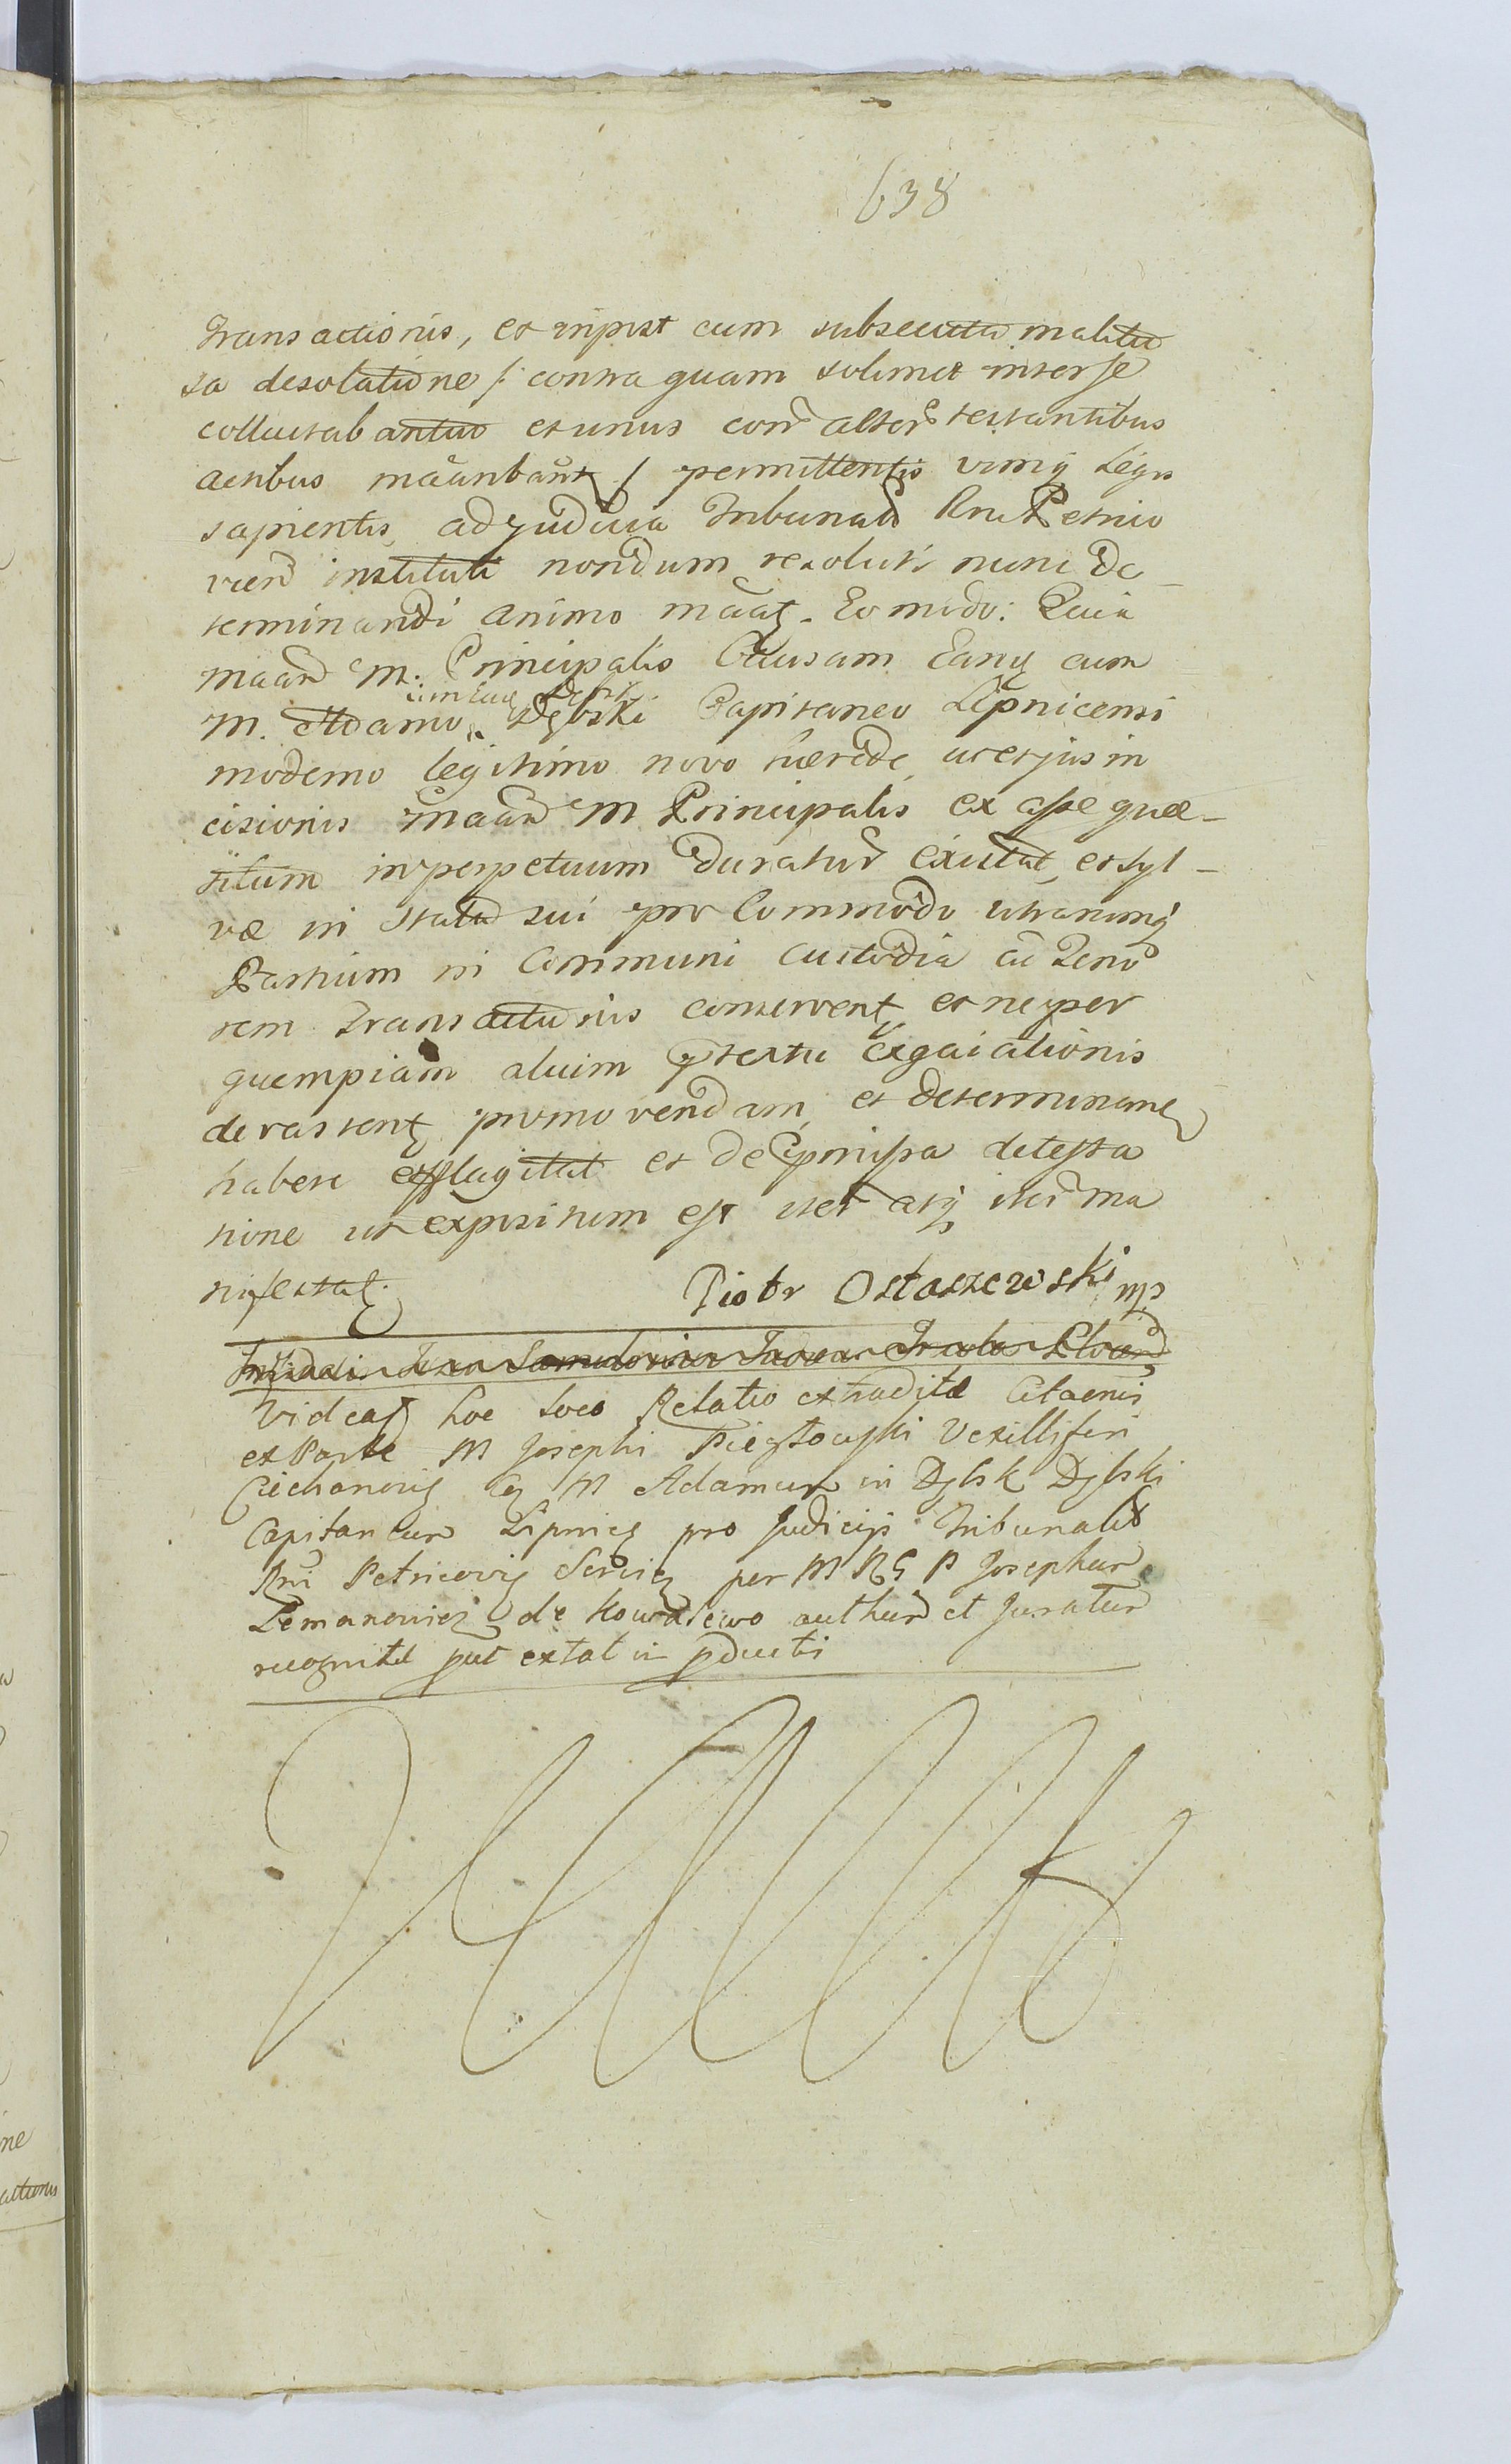 638
Transactionis, et inpost cum subsecuta malitio
sa desolatione /: contra quam solimet inter se
colluctabantur et unus contr alter testantibus
actibus maanbantz / permittentis vimqz Legis
sapientis, ad Judicia Tribunalis Rni Petrico
vien instituti nondum resoluti nunc de
terminandi animo maatz. Eo modo: Quia
maan M. Principalis Causam Eanqz cum
M. Adamo Dębski Capitaneo Lipnicensi
moderno legitimo novo hærede, ut et jus in
cisionis maan M Principalis ex asse quæ-
situm in perpetuum duratur existat, et syl-
væ in statu sui pro Commodo utrarumqz
Partium in Communi custodia ad Teno
rem Transactionis conserventz et ne per
quempiam alium ptextu exgaiationis
devastentz promovendam, et determinane
habere efflagitat et de Epmissa detesta
tione ut expositum est iter atqz iter ma
nifestatz.
Piotr Ostaszewski mp
Videatz hoc loco Relatio extraditæ Citaenis
ex Parte M Josephi Vexilliferi
Ciechanoviz Cz M Adamum in Dębsk Dębski
Capitaneum Lipnicz pro Judicijs Tribunalis
Rni Petricoviz Serviz per M RG P Josephum
Lemanowicz de Kowalewo authen et Juratum
recognita put extat in pducti